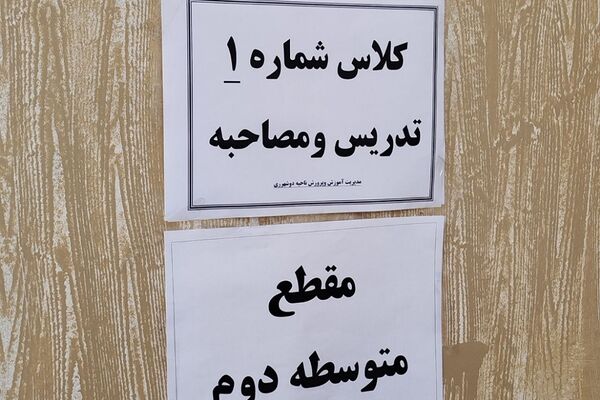 کلاس شماره ۱
تدریس ومصاحبه
مدیریت آموزش وپرورش ناحیه دوشهرری
مقطع
متوسطه دوم